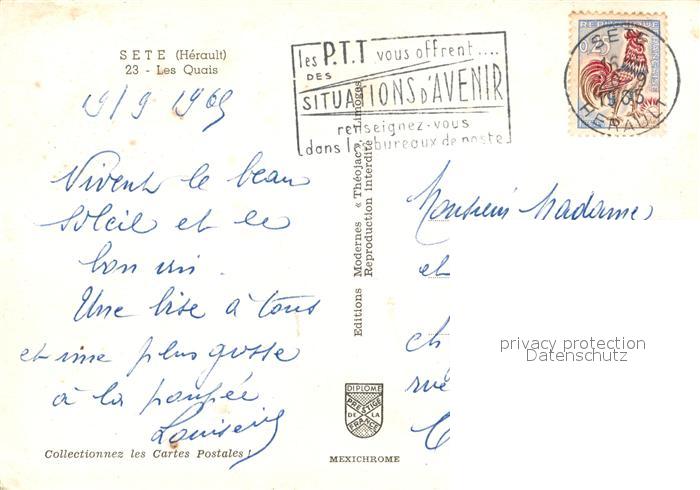 SETE (Hérault)
23 - Les Quais
19/9 1965
Vivent le beau
Soleil et le
bon vin.
Une bise à tous
et une plus grosse
à la poupée
Collectionnez les Cartes Postales !
Editions Modernes « Théojac », Limoges
Reproduction Interdite
DIPLOME
PRESTIGE
DE LA
FRANCE
MEXICHROME
les P.T.T vous offrent....
DES
SITUATIONS D'AVENIR
renseignez-vous
dans les bureaux de poste
SETE
16
1965
HERAULT
0,25
Monsieur Madame
et
et
rue
privacy protection
Datenschutz